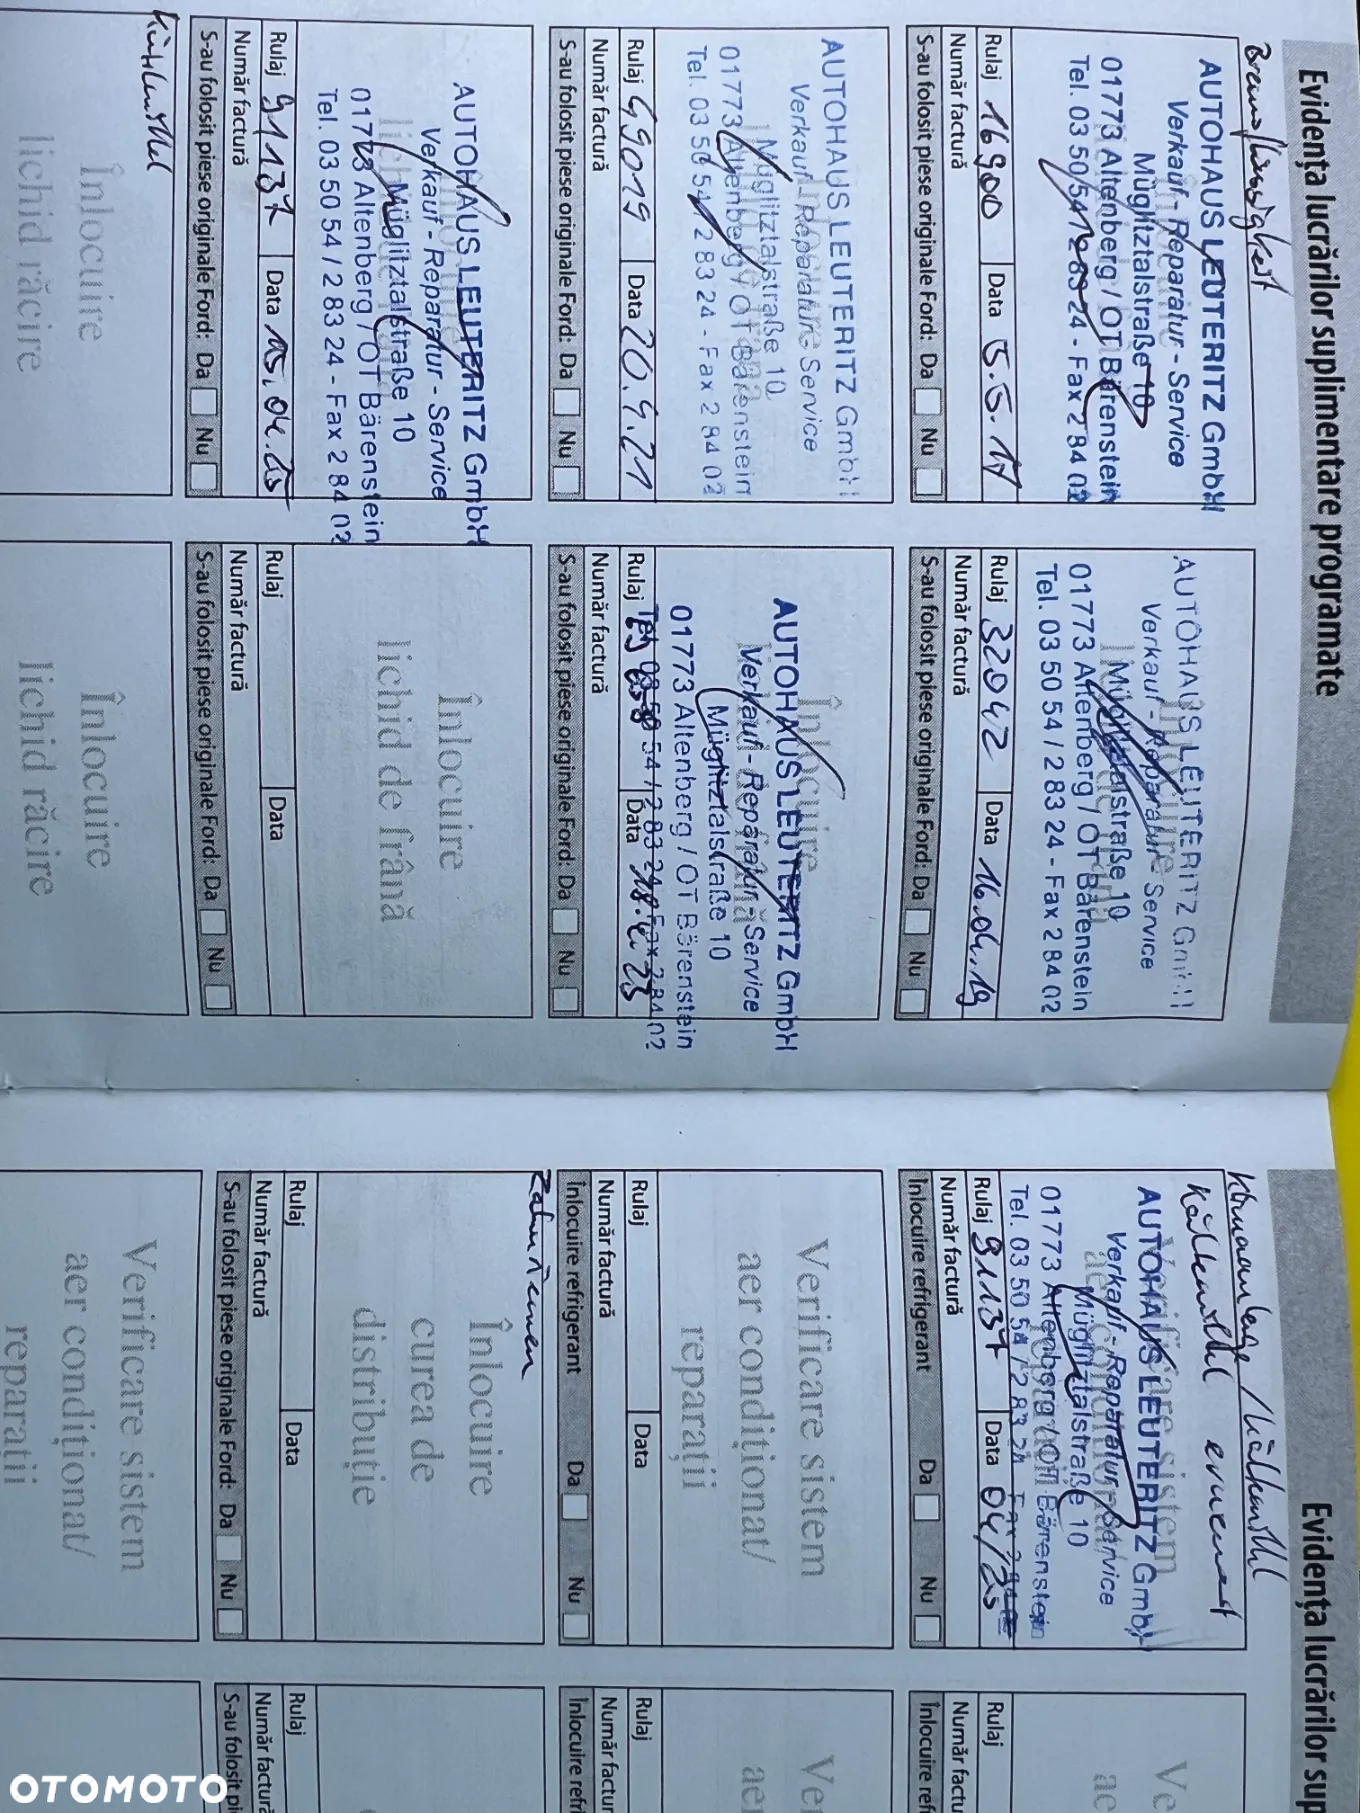 Evidența lucrărilor suplimentare programate
Bremsflüssigkeit
AUTOHAUS LEUTERITZ GmbH
Verkauf - Reparatur - Service
Müglitztalstraße 10
01773 Altenberg / OT Bärenstein
Tel. 03 50 54 / 2 83 24 - Fax 2 84 02
Rulaj 16900 Data 5.5.17
Număr factură
S-au folosit piese originale Ford: Da Nu
AUTOHAUS LEUTERITZ GmbH
Verkauf - Reparatur - Service
Müglitztalstraße 10
01773 Altenberg / OT Bärenstein
Tel. 03 50 54 / 2 83 24 - Fax 2 84 02
Rulaj 32042 Data 16.04.19
Număr factură
S-au folosit piese originale Ford: Da Nu
AUTOHAUS LEUTERITZ GmbH
Verkauf - Reparatur - Service
Müglitztalstraße 10
01773 Altenberg / OT Bärenstein
Tel. 03 50 54 / 2 83 24 - Fax 2 84 02
Rulaj 49019 Data 20.4.21
Număr factură
S-au folosit piese originale Ford: Da Nu
Înlocuire
lichid de frână
AUTOHAUS LEUTERITZ GmbH
Verkauf - Reparatur - Service
Müglitztalstraße 10
01773 Altenberg / OT Bärenstein
Tel. 03 50 54 / 2 83 24 - Fax 2 84 02
Rulaj Data
Număr factură
S-au folosit piese originale Ford: Da Nu
AUTOHAUS LEUTERITZ GmbH
Verkauf - Reparatur - Service
Müglitztalstraße 10
01773 Altenberg / OT Bärenstein
Tel. 03 50 54 / 2 83 24 - Fax 2 84 02
Rulaj 91137 Data 15.04.25
Număr factură
S-au folosit piese originale Ford: Da Nu
Înlocuire
lichid de frână
Rulaj Data
Număr factură
S-au folosit piese originale Ford: Da Nu
Kühlmittel
Înlocuire
lichid răcire
Înlocuire
lichid răcire
Evidența lucrărilor sup
Klimaanlage / Kühlmittel
Kühlmittel erneuert
Verificare sistem
AUTOHAUS LEUTERITZ GmbH
Verkauf - Reparatur - Service
Müglitztalstraße 10
01773 Altenberg / OT Bärenstein
Tel. 03 50 54 / 2 83 24 Fax 2 84
Rulaj 91137 Data 04/25
Număr factură
Inlocuire refrigerant Da Nu
Ve
ae
Rulaj
Număr factu
Inlocuire refri
Verificare sistem
aer condiționat/
reparații
Rulaj Data
Număr factură
Inlocuire refrigerant Da Nu
Ver
aer
Rulaj
Număr factur
Inlocuire refri
Zahnriemen
Înlocuire
curea de
distribuție
Rulaj Data
Număr factură
S-au folosit piese originale Ford: Da Nu
Rulaj
Număr factură
S-au folosit pi
Verificare sistem
aer condiționat/
reparații
OTOMOTO